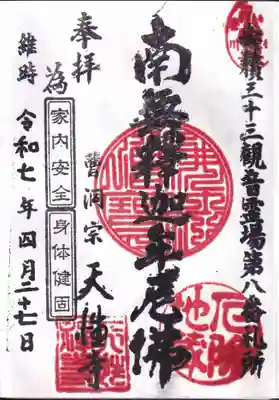 三十三観音霊場第八番札所
南無釋迦牟尼佛
曹洞宗
奉拝
為
家内安全
身体健固
維時
令和七年四月二十七日